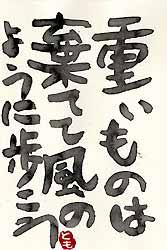 重いものは
棄てて風の
ように歩こう
とも